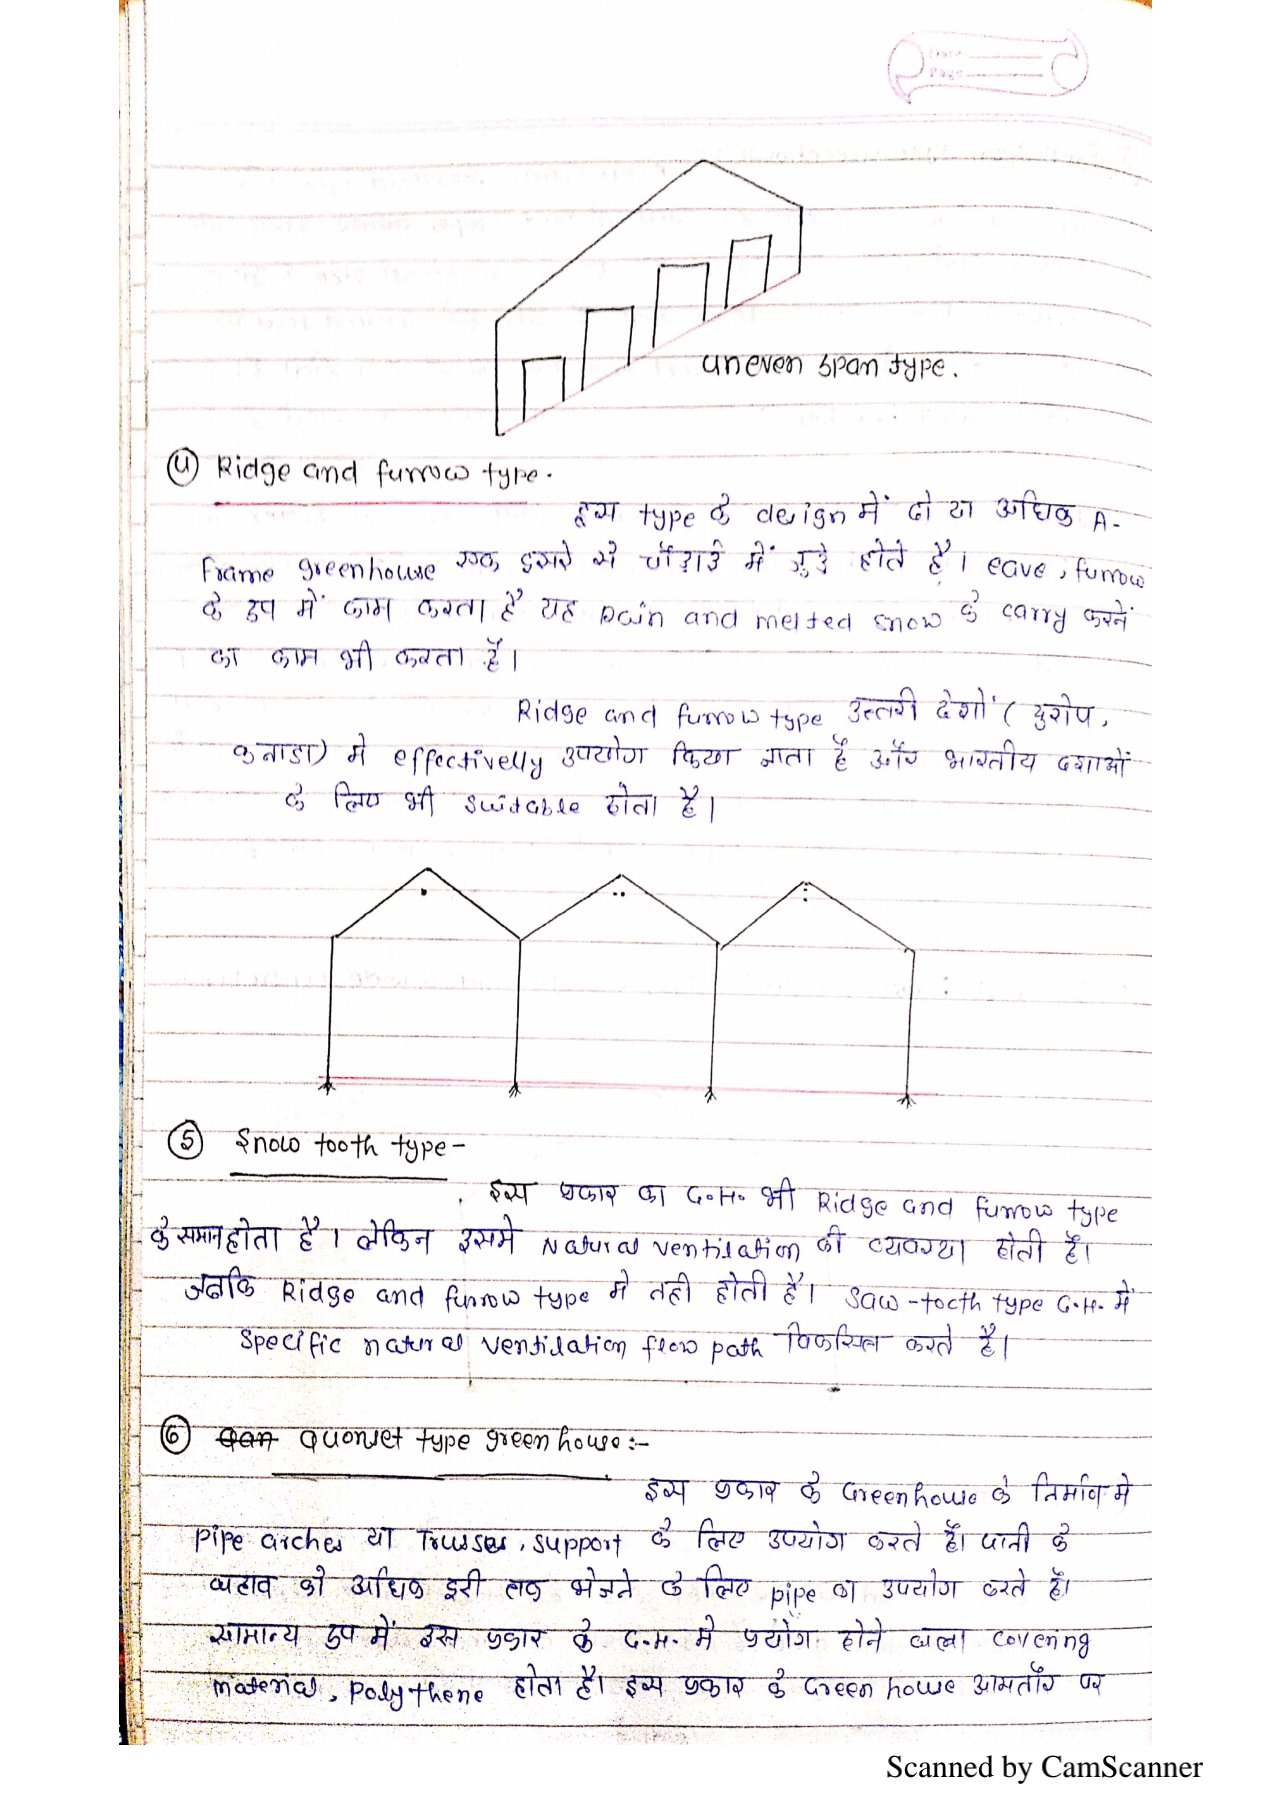 Date
Page
uneven span type.
④ Ridge and furrow type.
इस type के design में दो या अधिक A-
frame greenhouse एक दुसरे से चौड़ाई में जुड़े होते है। eave, furrow
के रुप में काम करता है यह Rain and melted snow के carry करनें
का काम भी करता है।
Ridge and furrow type उत्तरी देशों ( युरोप,
कनाडा) मे effectivelly उपयोग किया जाता है और भारतीय दशाओं
के लिए भी suitable होता है।
⑤ Snow tooth type-
इस प्रकार का G.H. भी Ridge and furrow type
के समान होता है। लेकिन इसमे Natural ventilation की व्यवस्था होती है।
जबकि Ridge and furrow type मे नही होती है। Saw-tooth type G.H. में
specific natural ventilation flow path विकसित करते है।
⑥ Quonset type greenhouse:-
इस प्रकार के Greenhouse के निर्माण मे
pipe arches या Trusses, support के लिए उपयोग करते है। पानी के
बहाव को अधिक दुरी तक भेजने के लिए pipe का उपयोग करते है।
सामान्य रुप में इस प्रकार के G.H. मे प्रयोग होने वाला covering
material, polythene होता है। इस प्रकार के Greenhouse आमतौर पर
Scanned by CamScanner